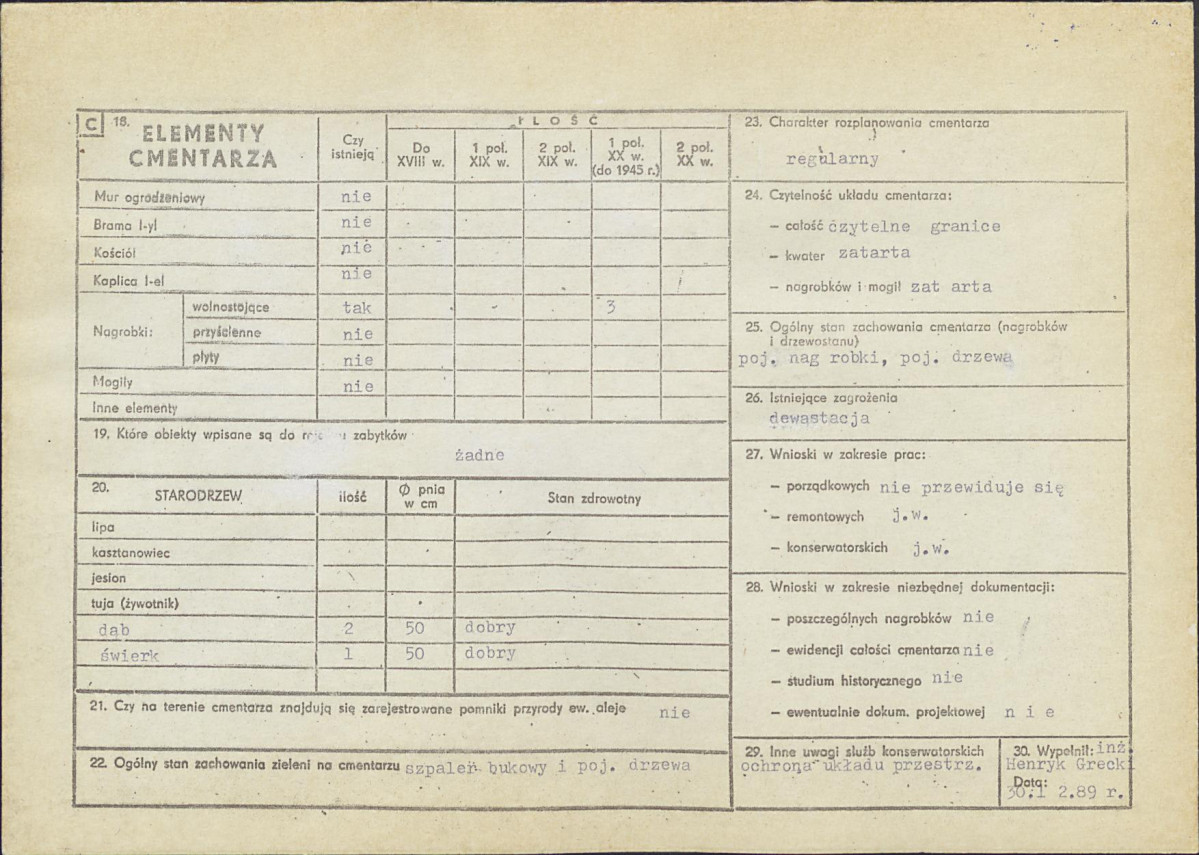 C 18. ELEMENTY CMENTARZA
Czy istnieją
ILOŚĆ
Do XVIII w.
1 poł. XIX w.
2 poł. XIX w.
1 poł. XX w. (do 1945 r.)
2 poł. XX w.
Mur ogrodzeniowy nie
Brama I-yI nie
Kościół nie
Kaplica I-eI nie
Nagrobki: wolnostojące tak 3
przyścienne nie
płyty nie
Mogiły nie
Inne elementy
19. Które obiekty wpisane są do zabytków
żadne
20. STARODRZEW ilość Ø pnia w cm Stan zdrowotny
lipa
kasztanowiec
jesion
tuja (żywotnik)
dąb 2 50 dobry
świerk 1 50 dobry
21. Czy na terenie cmentarza znajdują się zarejestrowane pomniki przyrody ew. aleje nie
22. Ogólny stan zachowania zieleni na cmentarzu szpaler bukowy i poj. drzewa
23. Charakter rozplanowania cmentarza
regularny
24. Czytelność układu cmentarza:
— całość czytelne granice
— kwater zatarta
— nagrobków i mogił zat arta
25. Ogólny stan zachowania cmentarza (nagrobków
i drzewostanu)
poj. nag robki, poj. drzewa
26. Istniejące zagrożenia
dewastacja
27. Wnioski w zakresie prac:
— porządkowych nie przewiduje się
— remontowych j.w.
— konserwatorskich j.w.
28. Wnioski w zakresie niezbędnej dokumentacji:
— poszczególnych nagrobków nie
— ewidencji całości cmentarza nie
— studium historycznego nie
— ewentualnie dokum. projektowej n i e
29. Inne uwagi służb konserwatorskich
ochrona układu przestrz.
30. Wypełnił: inż.
Henryk Grecki
Data:
30.1 2.89 r.